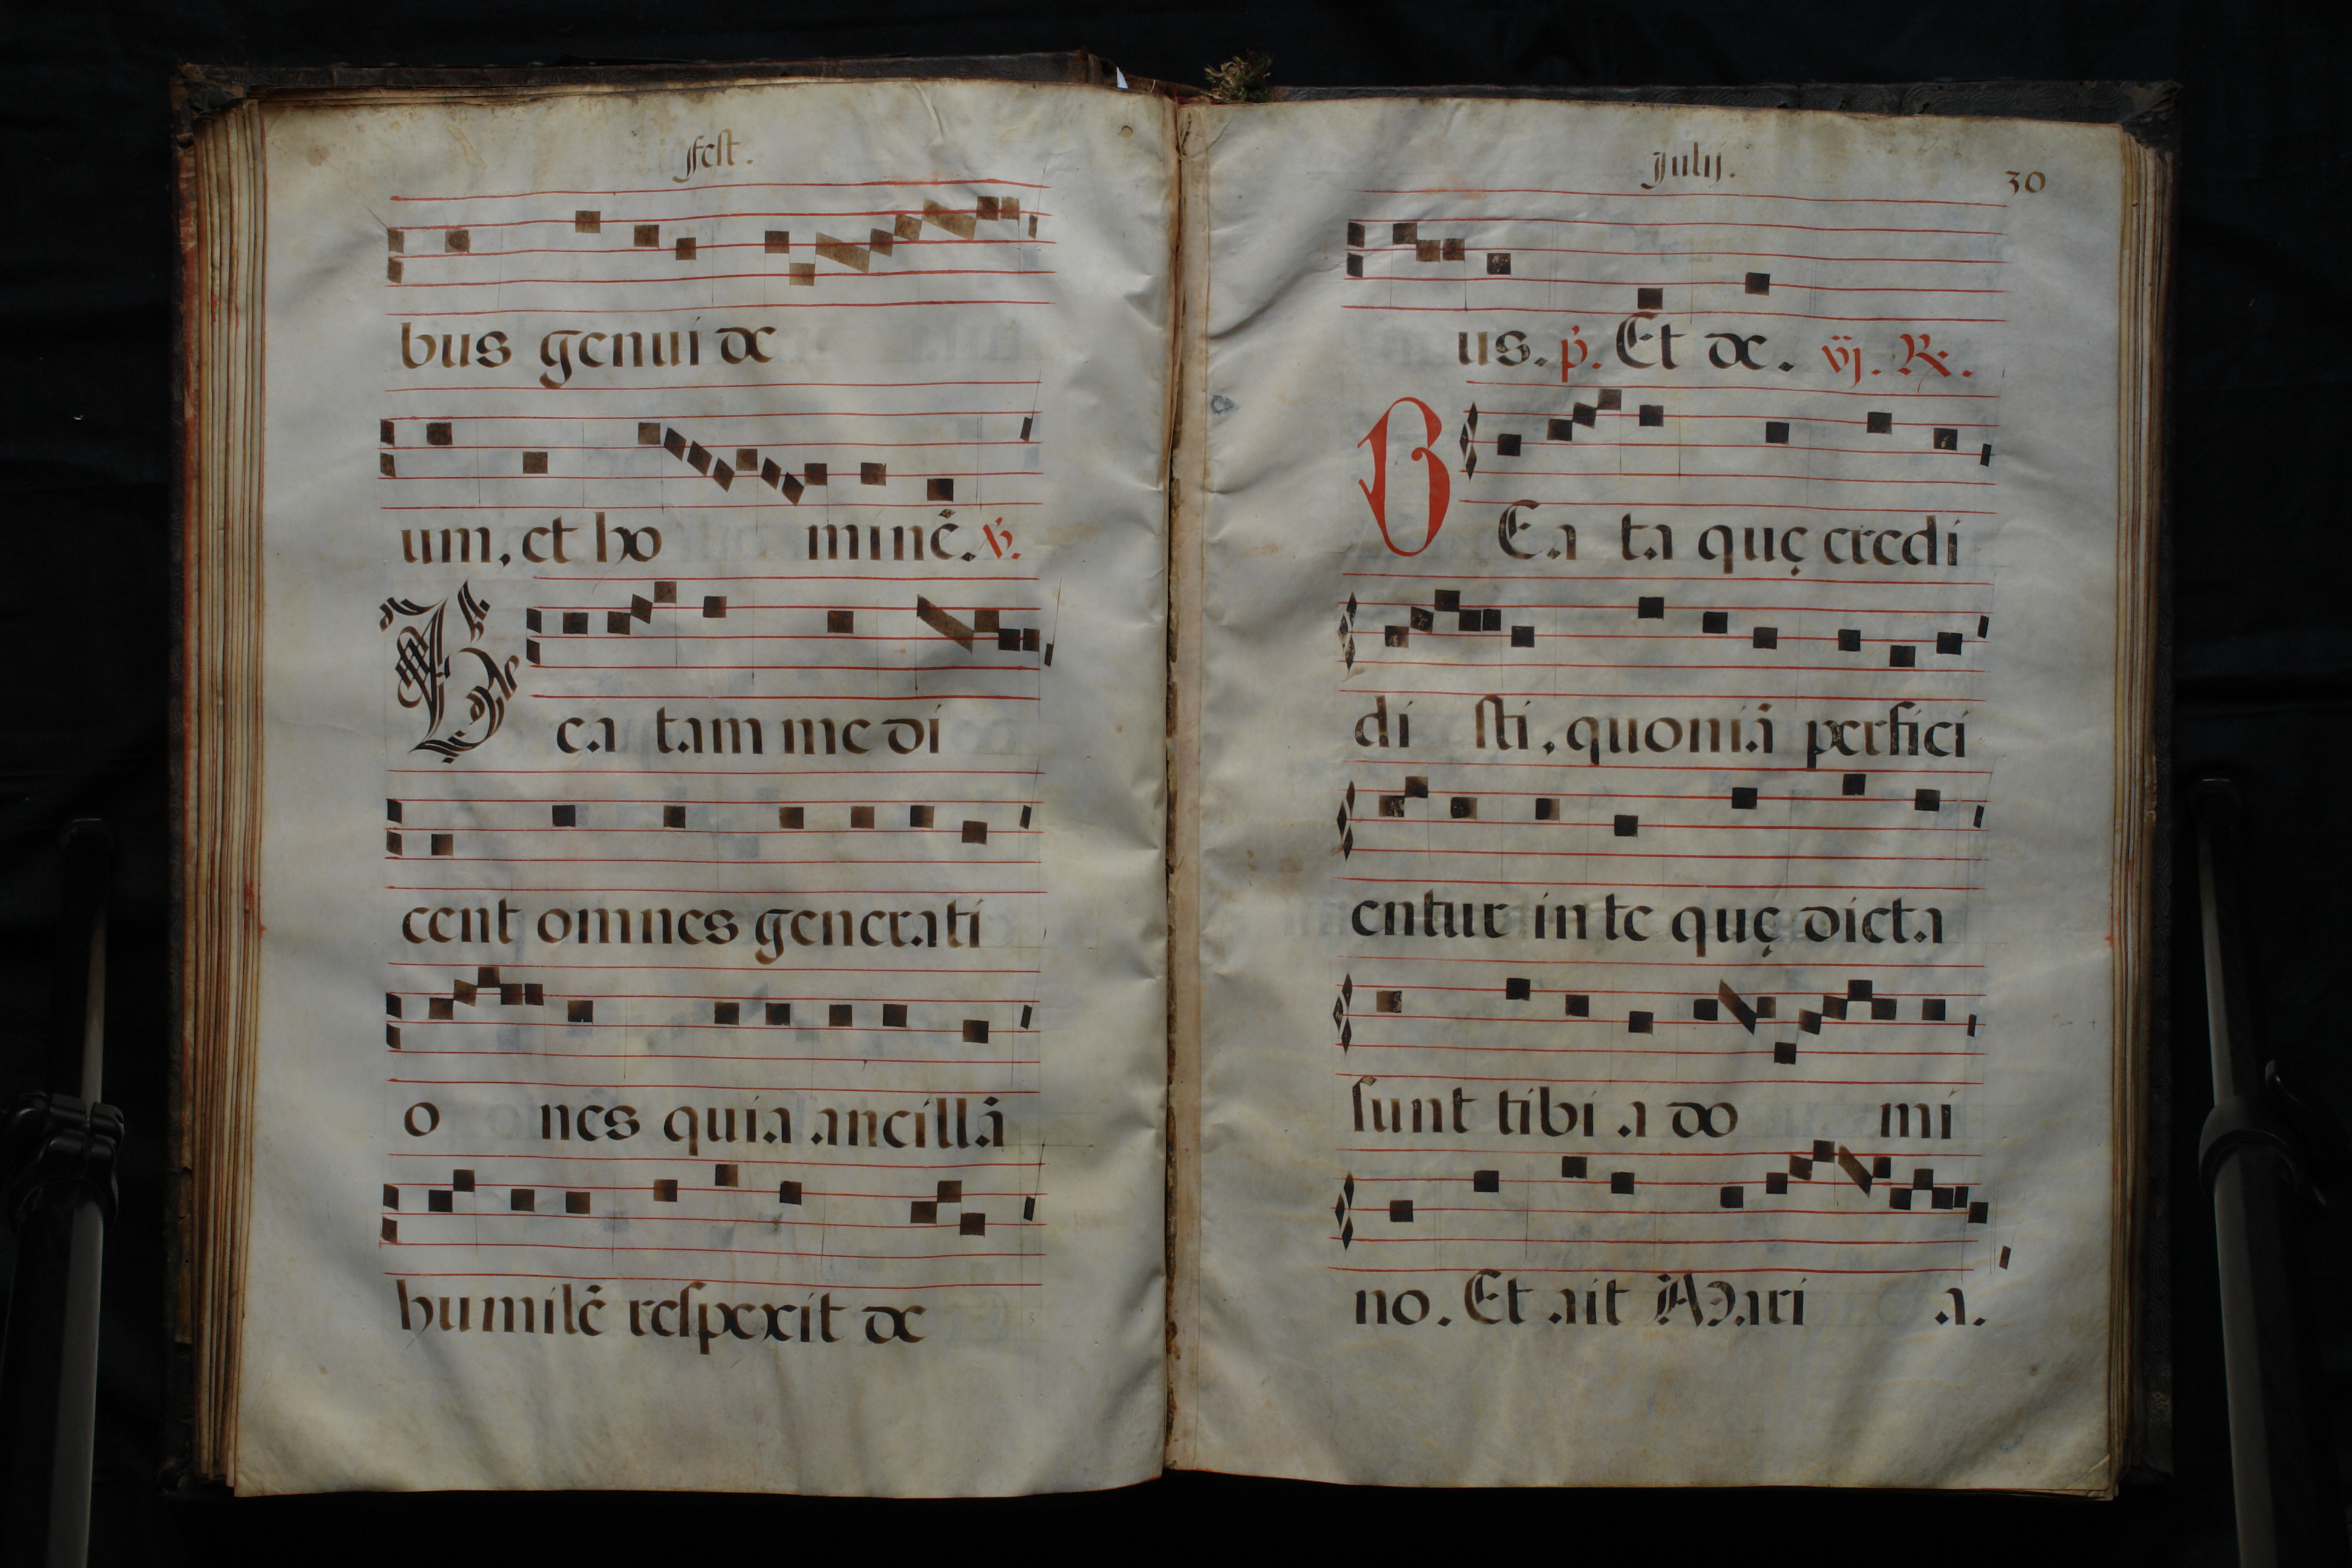 fest.
bus genui de
um, et ho minē. ℣.
Bea tam me di
cent omnes generati
o nes quia ancillā
humilē respexit de
Julij. 30
us. p̄. Et de. vj. ℟.
BEa ta quę credi
di sti, quoniā perfici
entur in te quę dicta
sunt tibi a do mi
no. Et ait Mari a.